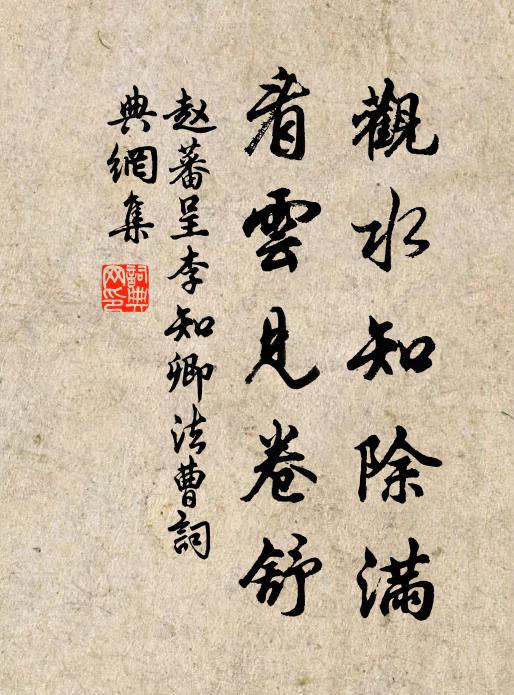 觀水知除滿
看雲見卷舒
赵蕃呈李知卿法曹詞
典網集
詞典
网印